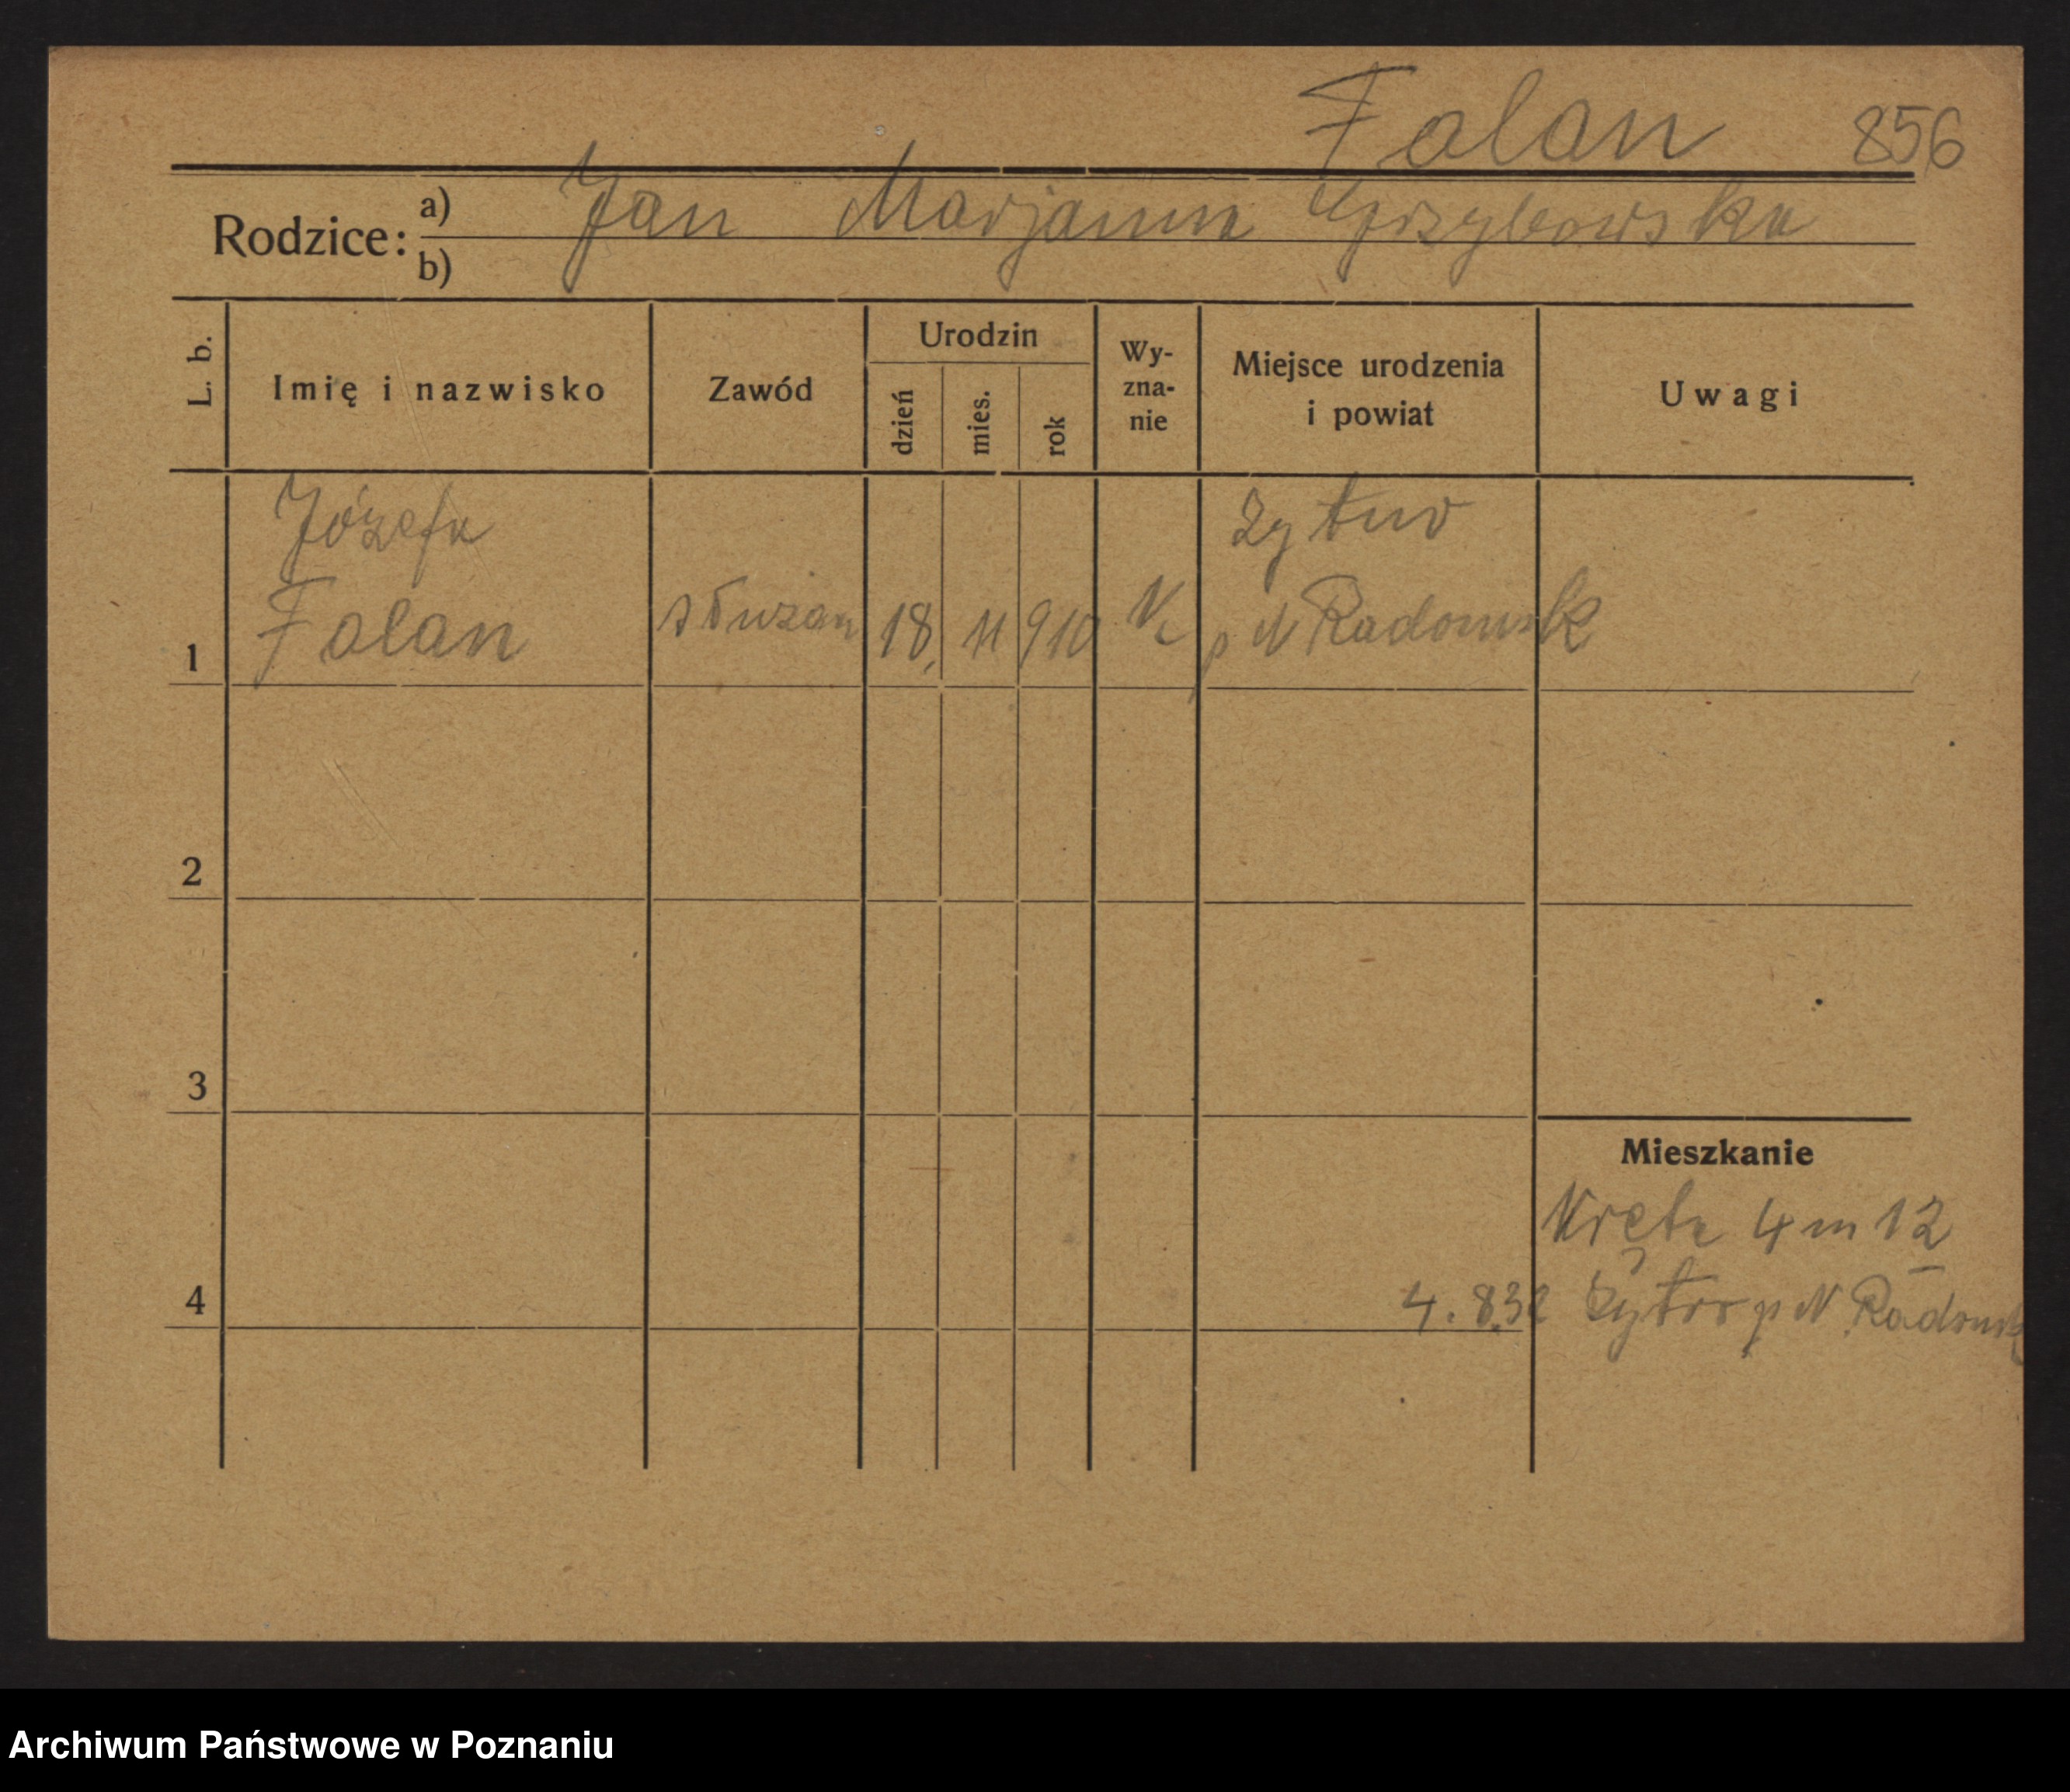 Falan 856
Rodzice: a) Jan Marjanna Grzybowska
b)
L. b. Imię i nazwisko Zawód Urodzin dzień mies. rok Wy-zna-nie Miejsce urodzenia i powiat Uwagi
Józefa Żytno
1 Falan służąca 18. 11 910 K p N Radomsk
2
3
Mieszkanie
Kręta 4 m 12
4 4.8.32 Żytno p N Radomsk
Archiwum Państwowe w Poznaniu